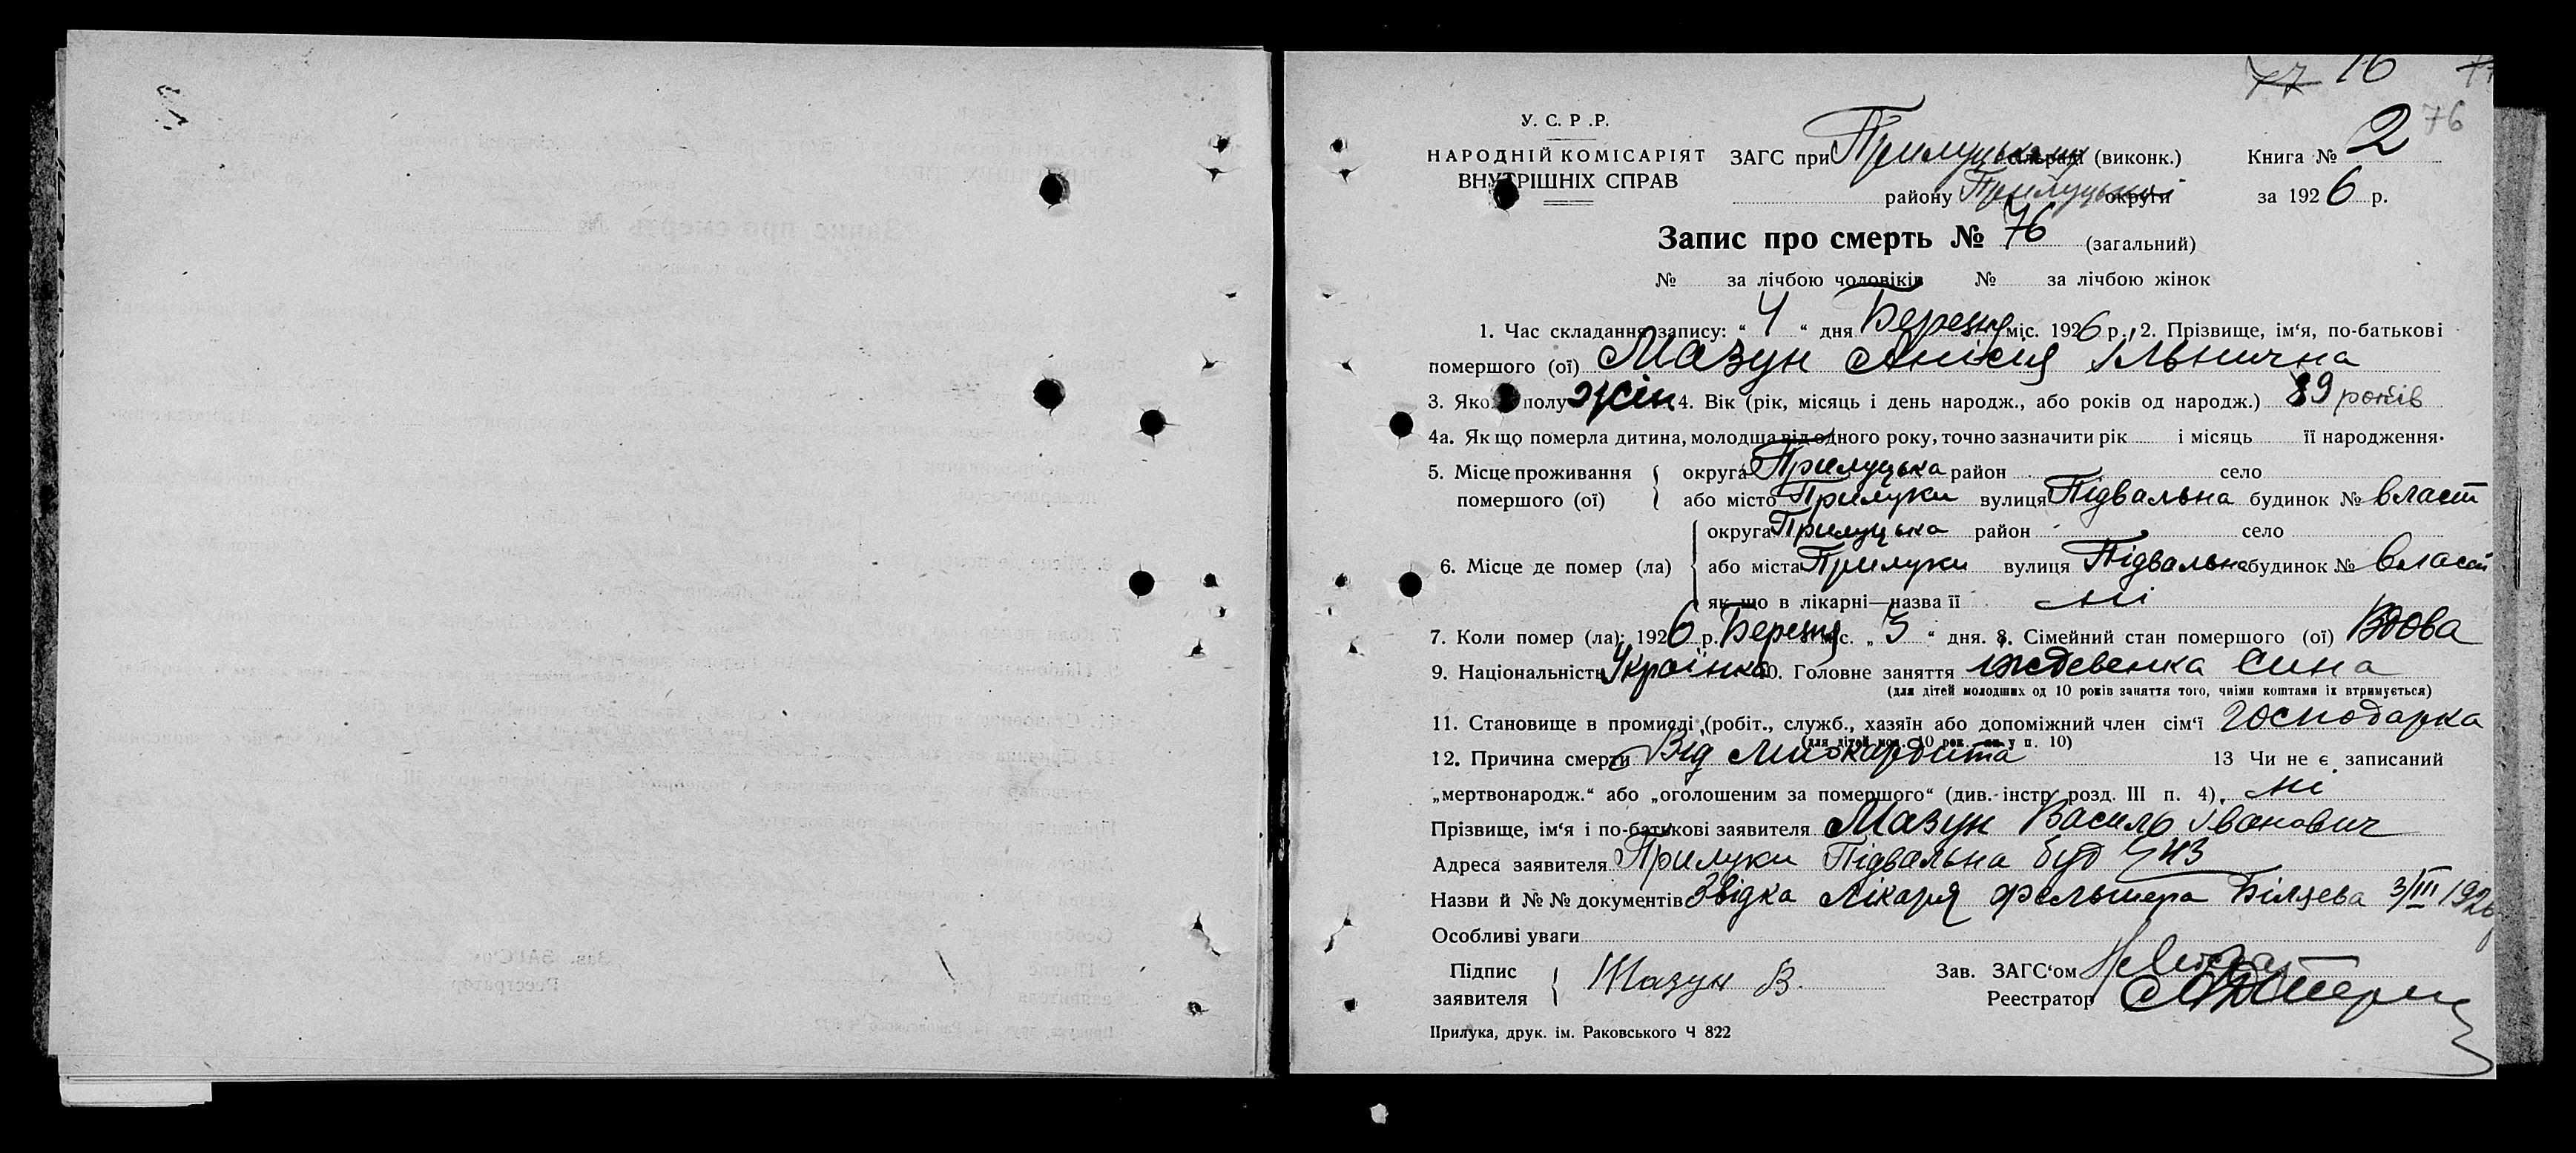 77 76
76
У. С. Р .Р.
НАРОДНІЙ КОМІСАРІЯТ ЗАГС при Прилуцькому сільраді (виконк.) Книга № 2
ВНУТРІШНІХ СПРАВ
району Прилуцької округи за 1926 р.
Запис про смерть № 76 (загальний)
№ за лічбою чоловіків № за лічбою жінок
1. Час складання запису: “ 4 “ дня Березня міс. 1926 р., 2. Прізвище, ім‘я, по-батькові
помершого (ої) Мазун Анісія Ільнична
3. Яко полу жін. 4. Вік (рік, місяць і день народж., або років од народж.) 89 років
4а. Як що померла дитина, молодша від одного року, точно зазначити рік і місяць її народження.
5. Місце проживання округа Прилуцька район село
помершого (ої) або місто Прилуки вулиця Підвальна будинок № власн
округа Прилуцька район село
6. Місце де помер (ла) або міста Прилуки вулиця Підвальна будинок № власн
як що в лікарні—назва її ні
7. Коли помер (ла): 1926 р. Березня міс. „ 3 “ дня. 8. Сімейний стан помершого (ої) Вдова
9. Національність Українка 10. Головне заняття іждевенка Сина
(для дітей молодших од 10 років заняття того, чиїми коштами їх втримується)
11. Становище в промислі (робіт., служб., хазяїн або допоміжний член сім‘ї Господарка
(для дітей мол. 10 рок. у п. 10)
12. Причина смерти Від миокардита 13 Чи не є записаний
„мертвонародж.“ або „оголошеним за помершого“ (див. інстр. розд. III п. 4). ні
Прізвище, ім‘я і по-батькові заявителя Мазун Василь Іванович
Адреса заявителя Прилуки Підвальна буд Ч 43
Назви й №№ документів Звідка лікаря фельшера Білцева 3/III 1926
Особливі уваги
Підпис Мазун В. Зав. ЗАГС‘ом
заявителя Реестратор
Прилука, друк. ім. Раковського Ч 822